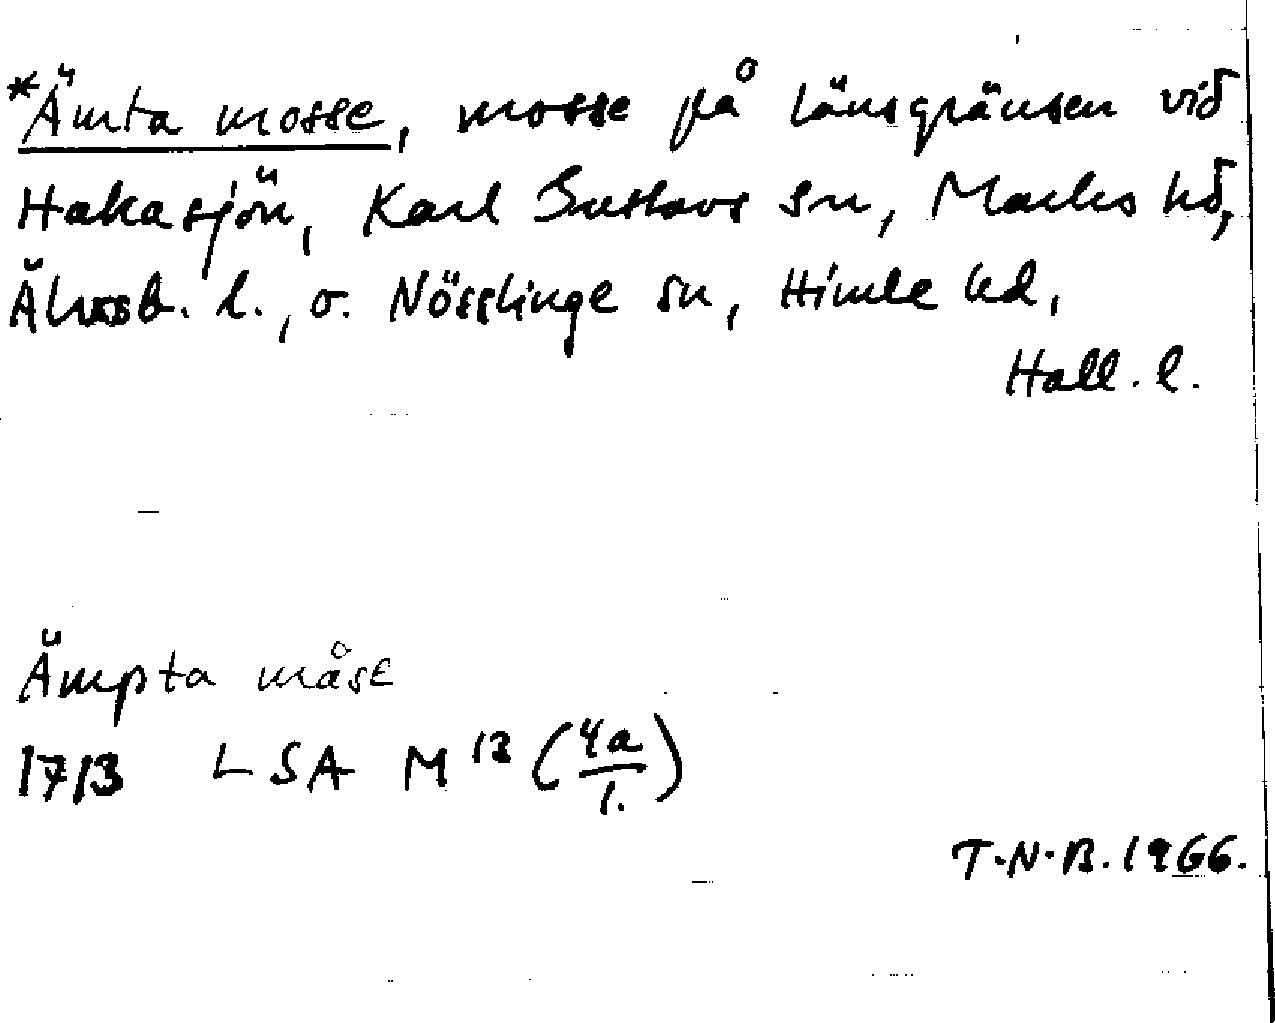 *Ämta mosse, mosse på länsgränsen vid
Hakasjön, Karl Gustavs sn, Marks hd,
Älvsb. l., o. Nösslinge sn, Himle hd,
Hall. l.
Ämpta måse
1713 LSA M 13 (4a/1.)
T.N.B. 1966.